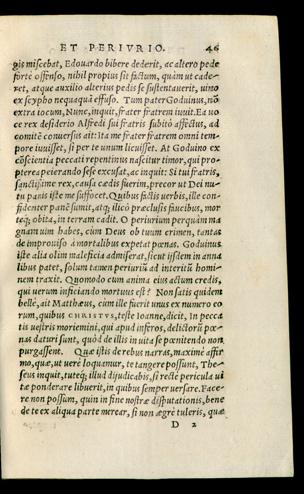 ET PERIVRIO. 46
gis miscebat, Edouardo bibere dederit, ac altero pede
forte offenso, nihil propius sit factum, quàm ut cade-
ret, atque auxilio alterius pedis se sustentauerit, uino
ex scypho nequaquā effuso. Tum pater Goduinus, nō
extra iocum, Nunc, inquit, frater fratrem iuuit. Ea uo
ce rex desiderio Alfredi sui fratris subitò affectus, ad
comitē conuersus ait: Ita me frater fratrem omni tem-
pore iuuisset, si per te unum licuisset. At Goduino ex
cōscientia peccati repentinus nascitur timor, qui pro-
pterea peierando sese excusat, ac inquit: Si tui fratris,
sanctissime rex, causa cædis fuerim, precor ut Dei nu-
tu panis iste me suffocet. Quibus fictis uerbis, ille con-
fidenter panē sumit, atq; illicò præclusis faucibus, mor
teq; obita, in terram cadit. O periurium perquàm ma
gnam uim habes, cum Deus ob tuum crimen, tantas
de improuiso à mortalibus expetat pœnas. Goduinus
iste alia olim maleficia admiserat, sicut ijsdem in anna
libus patet, solum tamen periuriū ad interitū homi-
nem traxit. Quomodo cum anima eius actum credis,
qui uerum inficiando mortuus est? Non satis quidem
bellè, ait Matthæus, cum ille fuerit unus ex numero eo
rum, quibus CHRISTVS, teste Ioanne, dicit, In pecca
tis uestris moriemini, qui apud inferos, delictorū pœ-
nas daturi sunt, quòd de illis in uita se pœnitendo non
purgassent. Quæ istis de rebus narras, maximè affir
mo, quæ, ut uerè loquamur, te tangere possunt, The-
seus inquit, tuteq; illud dijudicabis, si rectè pericula ui
tæ ponderare libuerit, in quibus semper uersare. Face
re non possum, quin in fine nostræ disputationis, bene
de te ex aliqua parte merear, si non ægrè tuleris, quæ
D 2